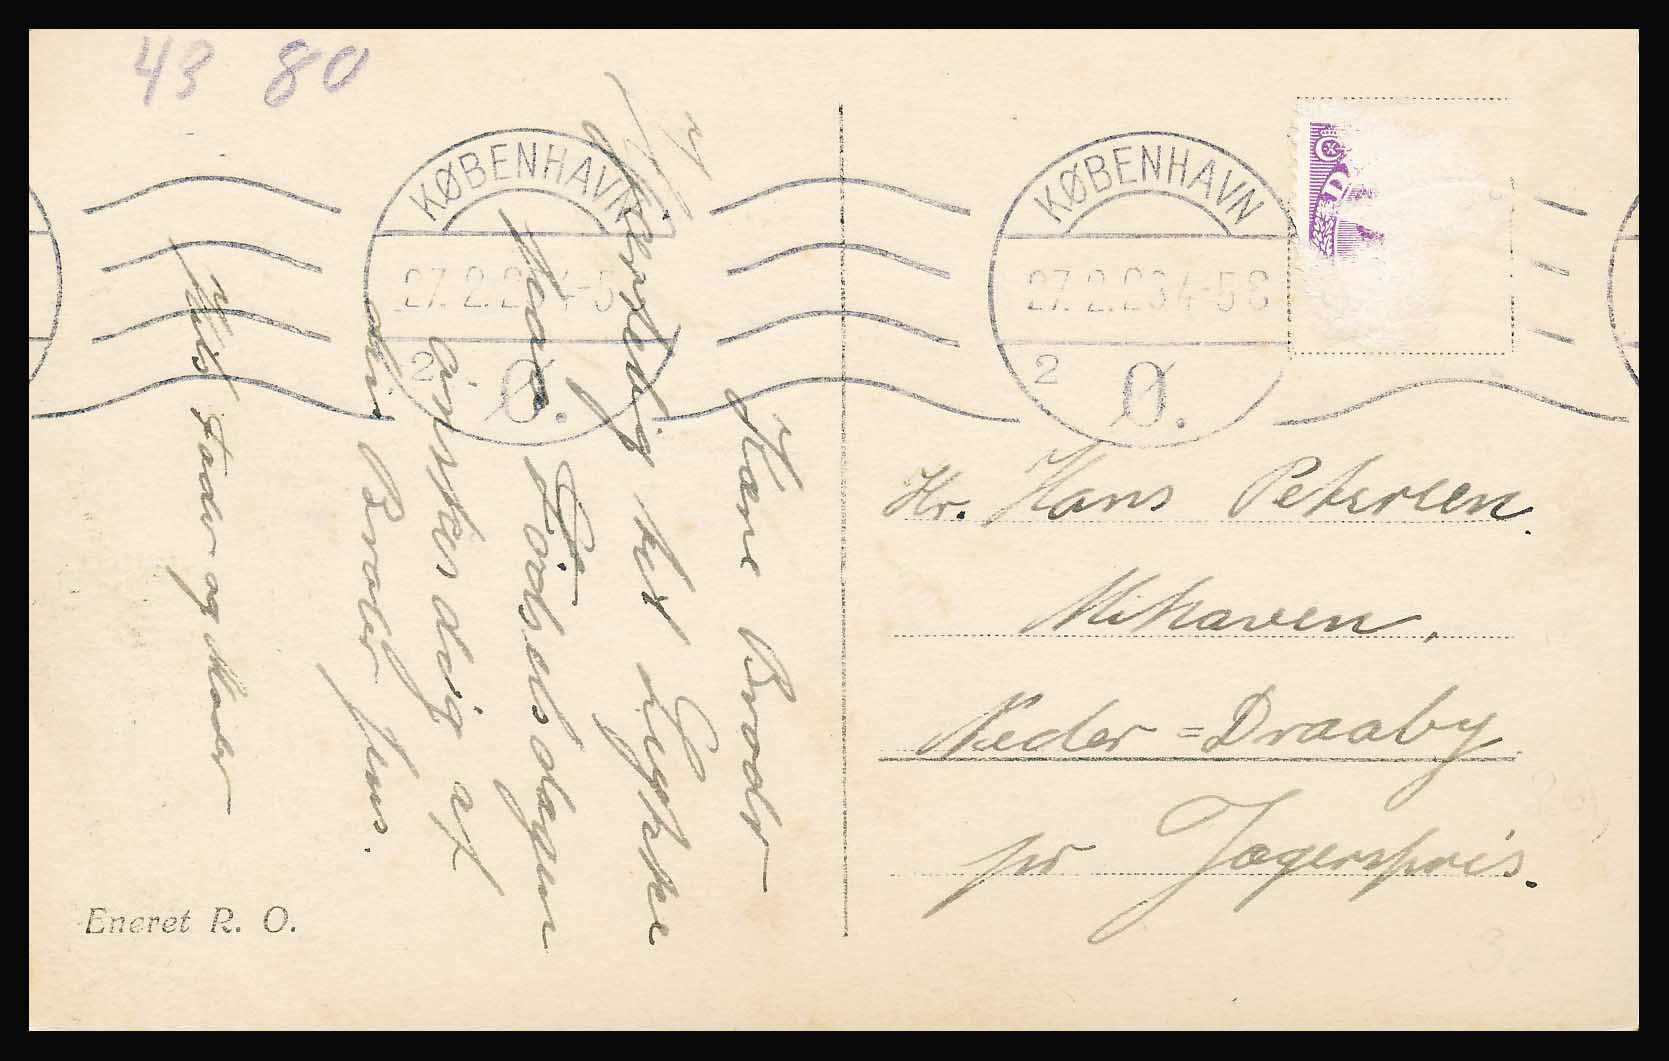 43 80
KØBENHAVN
2 Ø.
KØBENHAVN
27.2.23 4-5 E
2 Ø.
Kære Broder
Hjærtelig til Lykke
paa Födselsdagen
önskes dig af
din Broder Jens.
Hils Fader og Moder
Hr. Hans Petersen.
Nihaven,
Neder=Draaby
pr Jægerspris.
Eneret R. O.